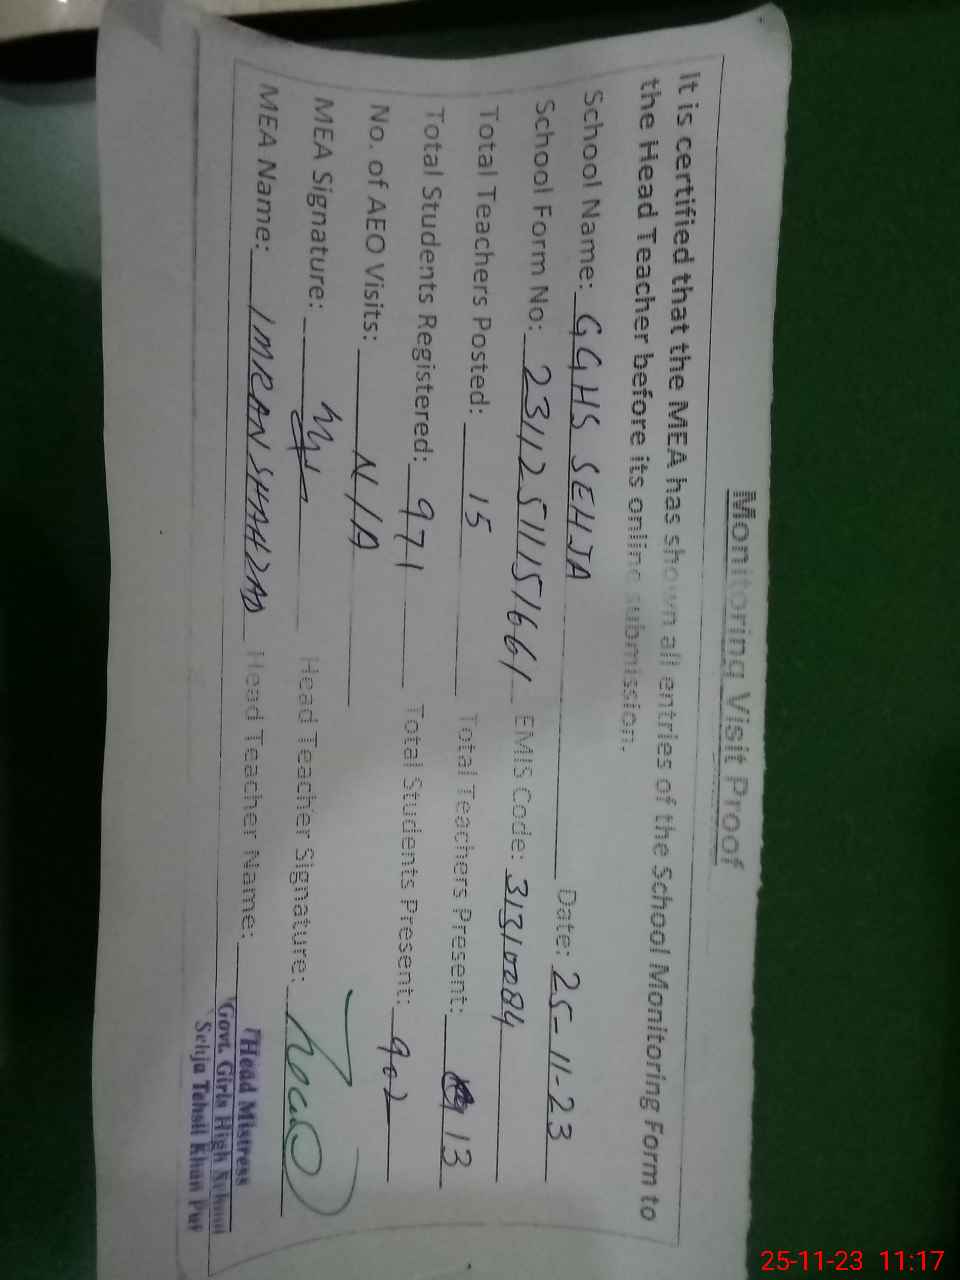 Monitoring Visit Proof
It is certified that the MEA has shown all entries of the School Monitoring Form to
the Head Teacher before its online submission.
School Name: GGHS SEHJA Date: 25-11-23
School Form No: 231125111151661 EMIS Code: 31310084
Total Teachers Posted: 15 Total Teachers Present: 13
Total Students Registered: 971 Total Students Present: 902
No. of AEO Visits: N/A
MEA Signature: Head Teacher Signature:
MEA Name: IMRAN SHAHZAD Head Teacher Name:
Head Mistress
Govt. Girls High School
Sehja Tehsil Khan Pur
25-11-23 11:17